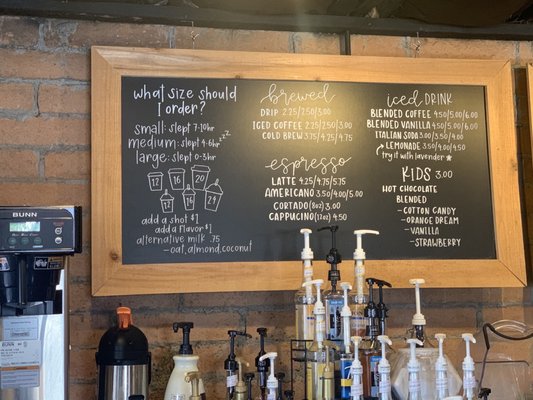 what size should
I order?
small: slept 7-10hr
medium: slept 4-6hr zzz
large: slept 0-3hr
12
16
20
12
16
24
add a shot $1
add a flavor $1
alternative milk .75
-oat, almond, coconut
brewed
DRIP 2.25/2.50/3.00
ICED COFFEE 2.25/2.50/3.00
COLD BREW 3.75/4.25/4.75
espresso
LATTE 4.25/4.75/5.75
AMERICANO 3.50/4.00/5.00
CORTADO (8oz) 3.00
CAPPUCINO (12oz) 4.50
iced DRINK
BLENDED COFFEE 4.50/5.00/6.00
BLENDED VANILLA 4.50/5.00/6.00
ITALIAN SODA 3.00/3.50/4.00
LEMONADE 3.50/4.00/4.50
try it with lavender
KIDS 3.00
HOT CHOCOLATE
BLENDED
-COTTON CANDY
-ORANGE DREAM
-VANILLA
-STRAWBERRY
BUNN